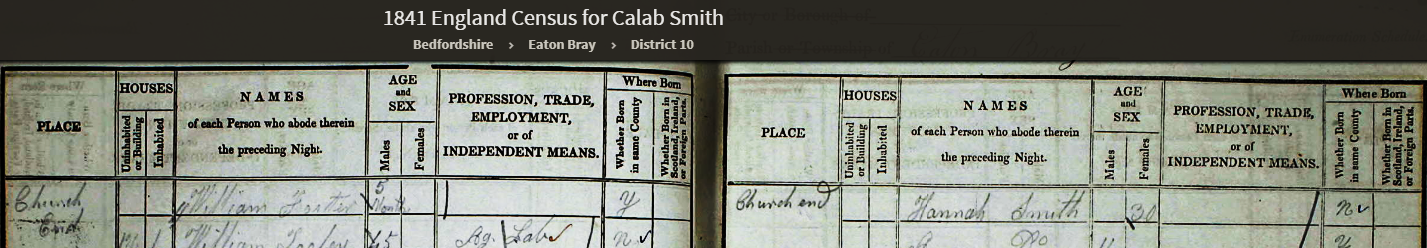 1841 England Census for Calab Smith
Bedfordshire › Eaton Bray › District 10
City or Borough of
Parish or Township of
PLACE
HOUSES
Uninhabited or Building
Inhabited
NAMES
of each Person who abode therein
the preceding Night.
AGE
and
SEX
Males
Females
PROFESSION, TRADE,
EMPLOYMENT,
or of
INDEPENDENT MEANS.
Where Born
Whether Born in same County
Whether Born in Scotland, Ireland, or Foreign Parts.
Church William 5 Y
End
William 45 Ag. Lab N
PLACE
HOUSES
Uninhabited or Building
Inhabited
NAMES
of each Person who abode therein
the preceding Night.
AGE
and
SEX
Males
Females
PROFESSION, TRADE,
EMPLOYMENT,
or of
INDEPENDENT MEANS.
Where Born
Whether Born in same County
Whether Born in Scotland, Ireland, or Foreign Parts.
Church end Hannah Smith 30 N
Do